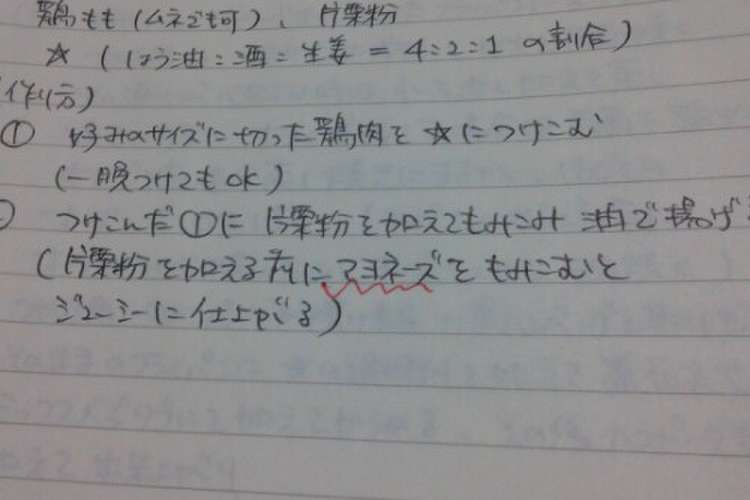 鶏もも(ムネでも可)、片栗粉
☆(しょう油:酒:生姜=4:2:1の割合)
(作り方)
① 好みのサイズに切った鶏肉を☆につけこむ
(一晩つけてもOK)
つけこんだ①に片栗粉を加えてもみこみ 油で揚げ
(片栗粉を加える前にマヨネーズをもみこむと
ジューシーに仕上がる)